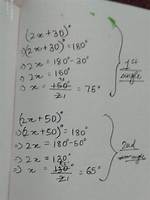 (2x+30)°
⇒(2x+30)° = 180°
⇒2x = 180°-30°
⇒2x = 150°
⇒ x = 150°/2 = 75°
1st angle
(2x+50)°
(2x+50)° = 180°
⇒2x = 180°-50°
⇒2x = 130°
⇒ x = 130°/2 = 65°
2nd angle